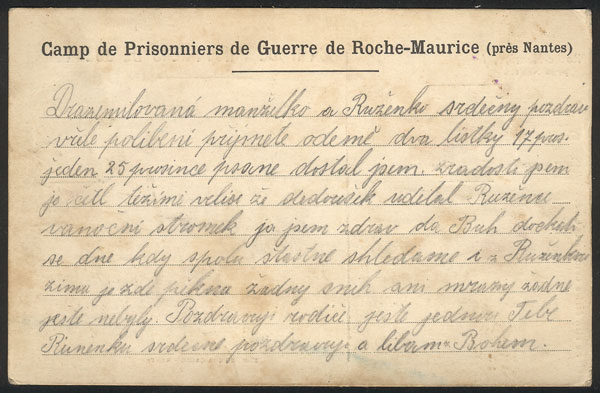 Camp de Prisonniers de Guerre de Roche-Maurice (près Nantes)
Drazemilovaná manželko a Ruženko srdečny pozdrav
vřele polibeni prijmete odemě dva listky 17 pros.
jeden 25 prosince psane dostal jsem. zradosti jsem
je četl těžimi velice že dedoušek udelal Ružence
vanočni stromek ja jsem zdrav da Buh dočkati
se dne kdy spolu štastně shledame i z Ruženkou
zima je zde pekna žadny snih ani mrazy žadne
ješte nebyly. Pozdravuji rodiče ješte jednou Tebe
Ruženku srdečně pozdravuji a libam z Bohem.